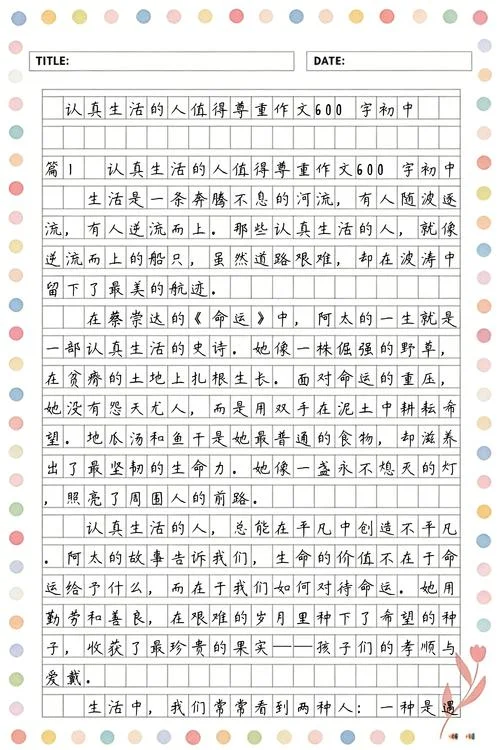 TITLE:
DATE:
认真生活的人值得尊重作文600 字初中
篇1 认真生活的人值得尊重作文600 字初中
生活是一条奔腾不息的河流, 有人随波逐
流, 有人逆流而上. 那些认真生活的人, 就像
逆流而上的船只, 虽然道路艰难, 却在波涛中
留下了最美的航迹.
在蔡崇达的《命运》中, 阿太的一生就是
一部认真生活的史诗. 她像一株倔强的野草,
在贫瘠的土地上扎根生长. 面对命运的重压,
她没有怨天尤人, 而是用双手在泥土中耕耘希
望. 地瓜汤和鱼干是她最普通的食物, 却滋养
出了最坚韧的生命力. 她像一盏永不熄灭的灯
, 照亮了周围人的前路.
认真生活的人, 总能在平凡中创造不平凡
. 阿太的故事告诉我们, 生命的价值不在于命
运给予什么, 而在于我们如何对待命运. 她用
勤劳和善良, 在艰难的岁月里种下了希望的种
子, 收获了最珍贵的果实——孩子们的孝顺与
爱戴.
生活中, 我们常常看到两种人: 一种是遇